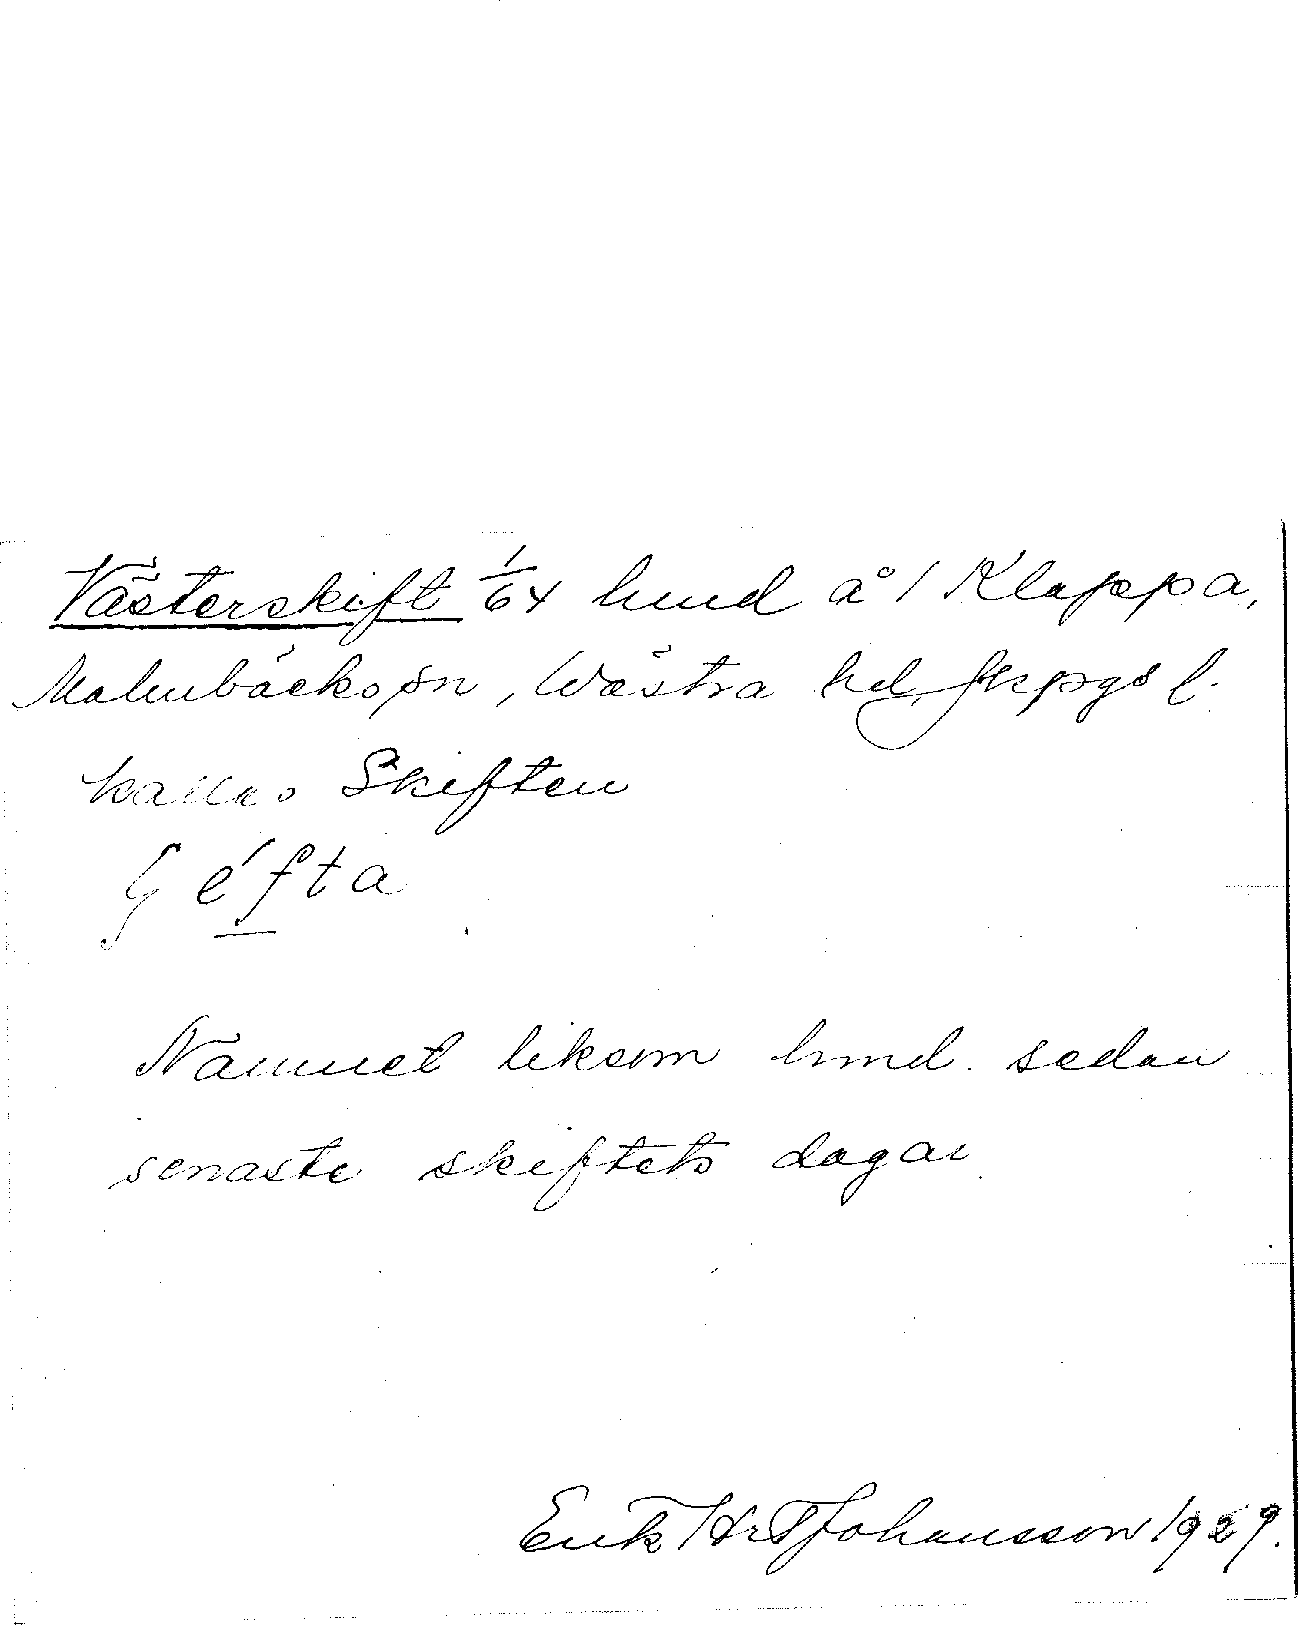 Västerskift 1/64 hmd å 1 Klappa,
Malmbäcks sn, Västra hd, Jkpgs l.
kallas Skiften
éfta
Namnet liksom hmd. sedan
senaste skiftets dagar
Erik Johansson 1929.